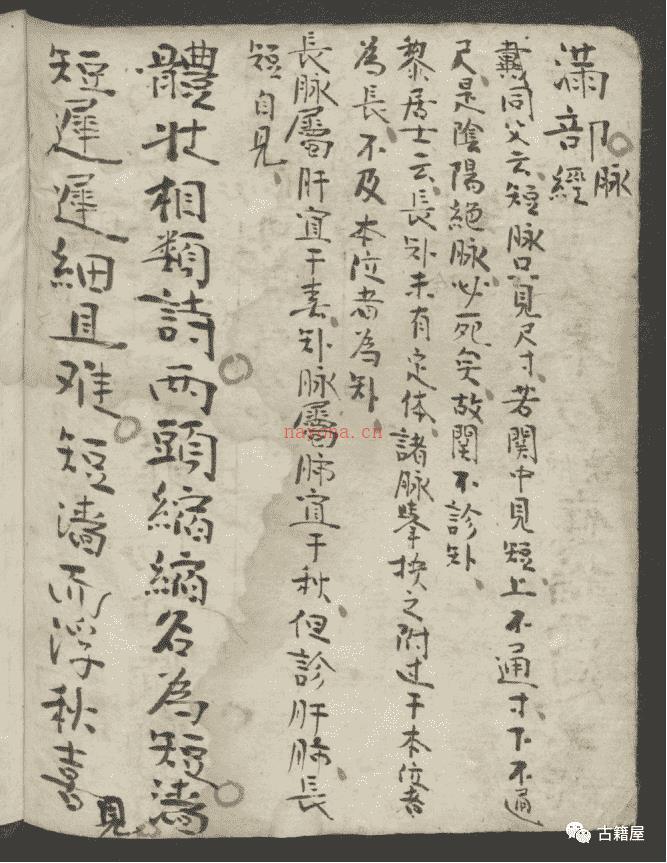 滿部經
脉
戴同父云短脉只見尺寸若関中見短上不通寸下不通
尺是陰陽絕脉必死矣故関不診短
黎居士云長短未有定体諸脉舉按之附过于本位者
為長不及本位者為短
長脉屬肝宜于春短脉屬肺宜于秋但診肝肺長
短自見
體壮相類詩兩頭縮縮名為短濇
短遲遲細且难短濇而浮秋喜見
nayona.cn
古籍屋